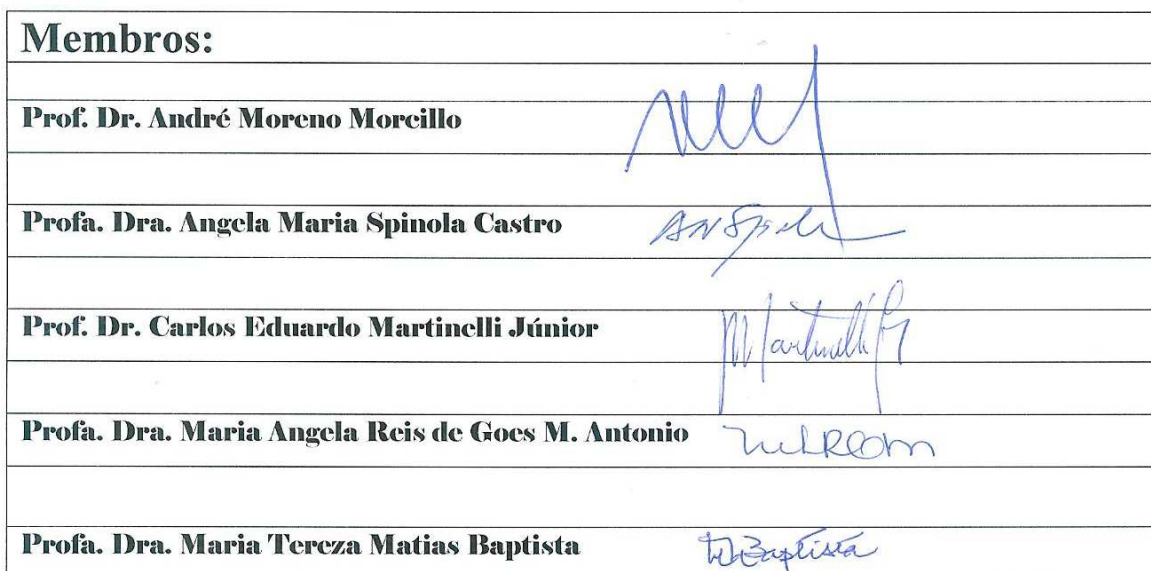 Membros:
Prof. Dr. André Moreno Morcillo
Profa. Dra. Angela Maria Spinola Castro
Prof. Dr. Carlos Eduardo Martinelli Júnior
Martinelli Jr
Profa. Dra. Maria Angela Reis de Goes M. Antonio
Profa. Dra. Maria Tereza Matias Baptista
Baptista